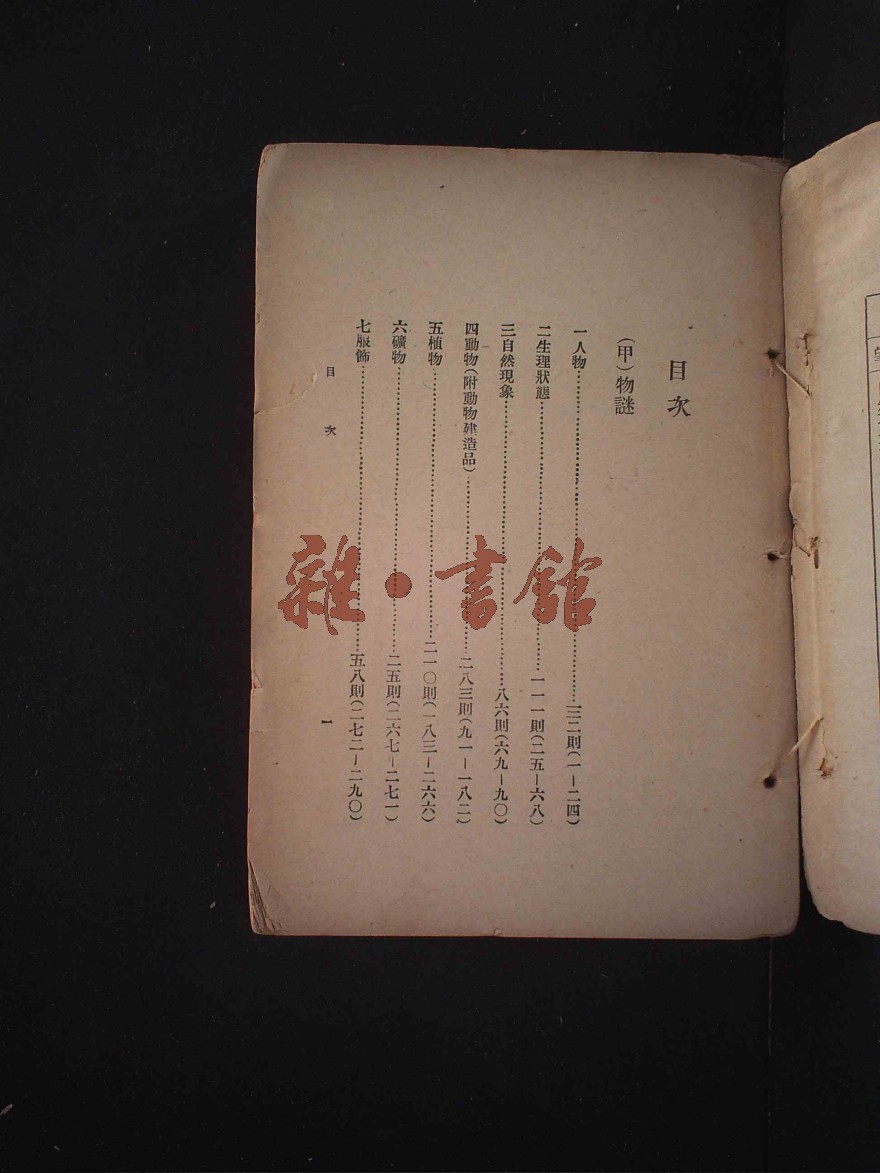 目次
(甲)物謎
一人物……三二則(一-二四)
二生理狀態……一一一則(二五-六八)
三自然現象……八六則(六九-九〇)
四動物(附動物建造品)……二八三則(九一-一八二)
五植物……二一〇則(一八三-二六六)
六礦物……二五則(二六七-二七一)
七服飾……五八則(二七二-二九〇)
目次 一
雜·書館